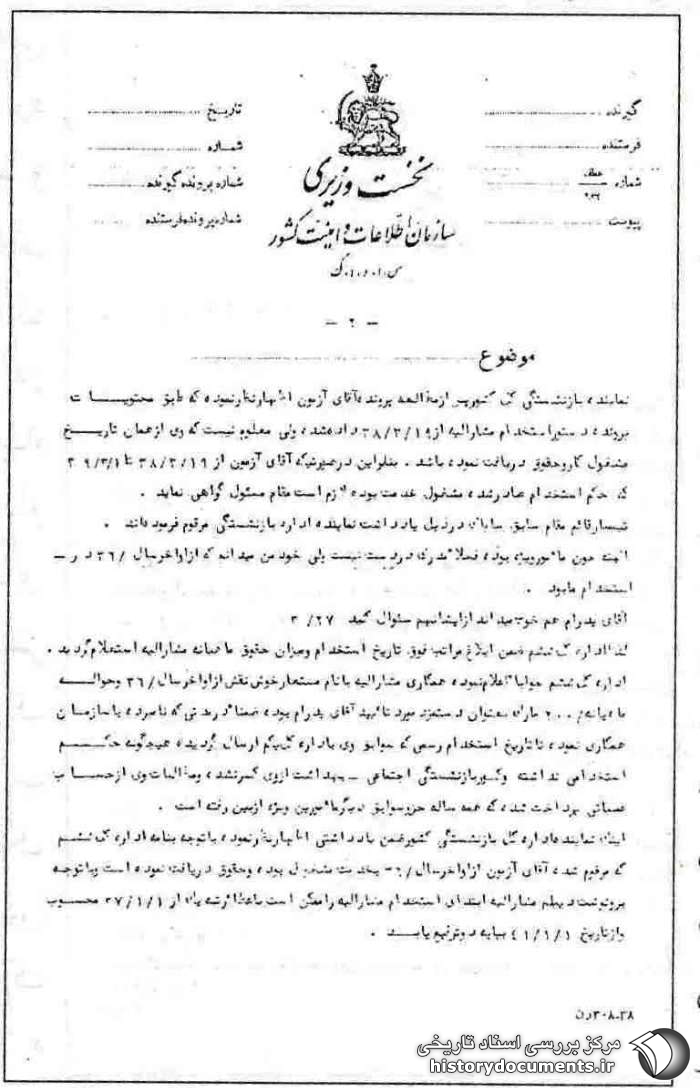 گیرنده
تاریخ
فرستنده
شماره
شماره عطف
شماره پرونده گیرنده
پیوست
شماره پرونده فرستنده
نخست وزیری
سازمان اطلاعات و امنیت کشور
س.ا.و.ا.ک
- ۲ -
موضوع
نماینده بازنشستگی کل کشور پس از مطالعه پرونده آقای آزمون اظهارنظر نموده که طبق محتویات
پرونده دستور استخدام مشارالیه از ۳۸/۲/۱۹ داده شده ولی معلوم نیست که وی از همان تاریخ
مشغول کار و حقوق دریافت نموده باشد . بنابراین در صورتیکه آقای آزمون از ۳۸/۲/۱۹ تا ۳۹/۳/۱
که حکم استخدام صادر شده مشغول خدمت بوده لازم است مقام مسئول گواهی نماید .
تیمسار قائم مقام سابق ساواک در ذیل یادداشت نماینده اداره بازنشستگی مرقوم فرموده‌اند .
البته چون مامور ویژه بوده فعلا مدرک در دست نیست ولی خود من میدانم که از اواخر سال /۳۶ در
استخدام ما بود .
آقای پدرام هم خوب میداند از ایشان هم سئوال کنید ۳/۲۷
لذا اداره کل ششم ضمن ابلاغ مراتب فوق تاریخ استخدام و میزان حقوق ماهیانه مشارالیه استعلام گردید .
اداره کل ششم جوابا اعلام نموده همکاری مشارالیه با نام مستعار خوش نقش از اواخر سال /۳۶ و حواله
ماهیانه /۲۰۰ مارک بعنوان دستمزد مورد تائید آقای پدرام بوده ضمنا در مدتی که نامبرده با سازمان
همکاری نموده تا تاریخ استخدام رسمی که سوابق وی باداره کل یکم ارسال گردیده هیچگونه حکم
استخدامی نداشته و کسور بازنشستگی اجتماعی - بهداشت از وی کسر نشده و مطالبات وی از حساب
عملیاتی پرداخت شده که همه ساله جزو سوابق دیگر مامورین ویژه از بین رفته است .
اینک نماینده اداره کل بازنشستگی کشور ضمن یادداشتی اظهارنظر نموده با توجه بنامه اداره کل ششم
که مرقوم شده آقای آزمون از اواخر سال /۳۶ بخدمت مشغول بوده و حقوق دریافت نموده است و با توجه
برونوشت دیپلم مشارالیه ابتدای استخدام مشارالیه را ممکن است با اعطا رتبه یک از ۳۷/۱/۱ محسوب
و از تاریخ ۴۱/۱/۱ بپایه دو ترفیع یابد .
۳۰۸-۳۸ ن
مرکز بررسی اسناد تاریخی
historydocuments.ir